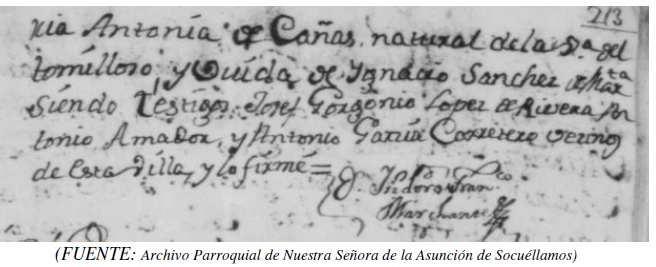 213
ria Antonia de Cañas, natural de la Va. del
tomilloso y Viuda de Ignacio Sanchez de Marta
Siendo testigos Josef Gorgonio Lopez de Rivera An
tonio Amador, y Antonio Garcia Carretero vecinos
de esta Villa, y lo firmé =
D. Isidoro Franco.
Marchante
(FUENTE: Archivo Parroquial de Nuestra Señora de la Asunción de Socuéllamos)